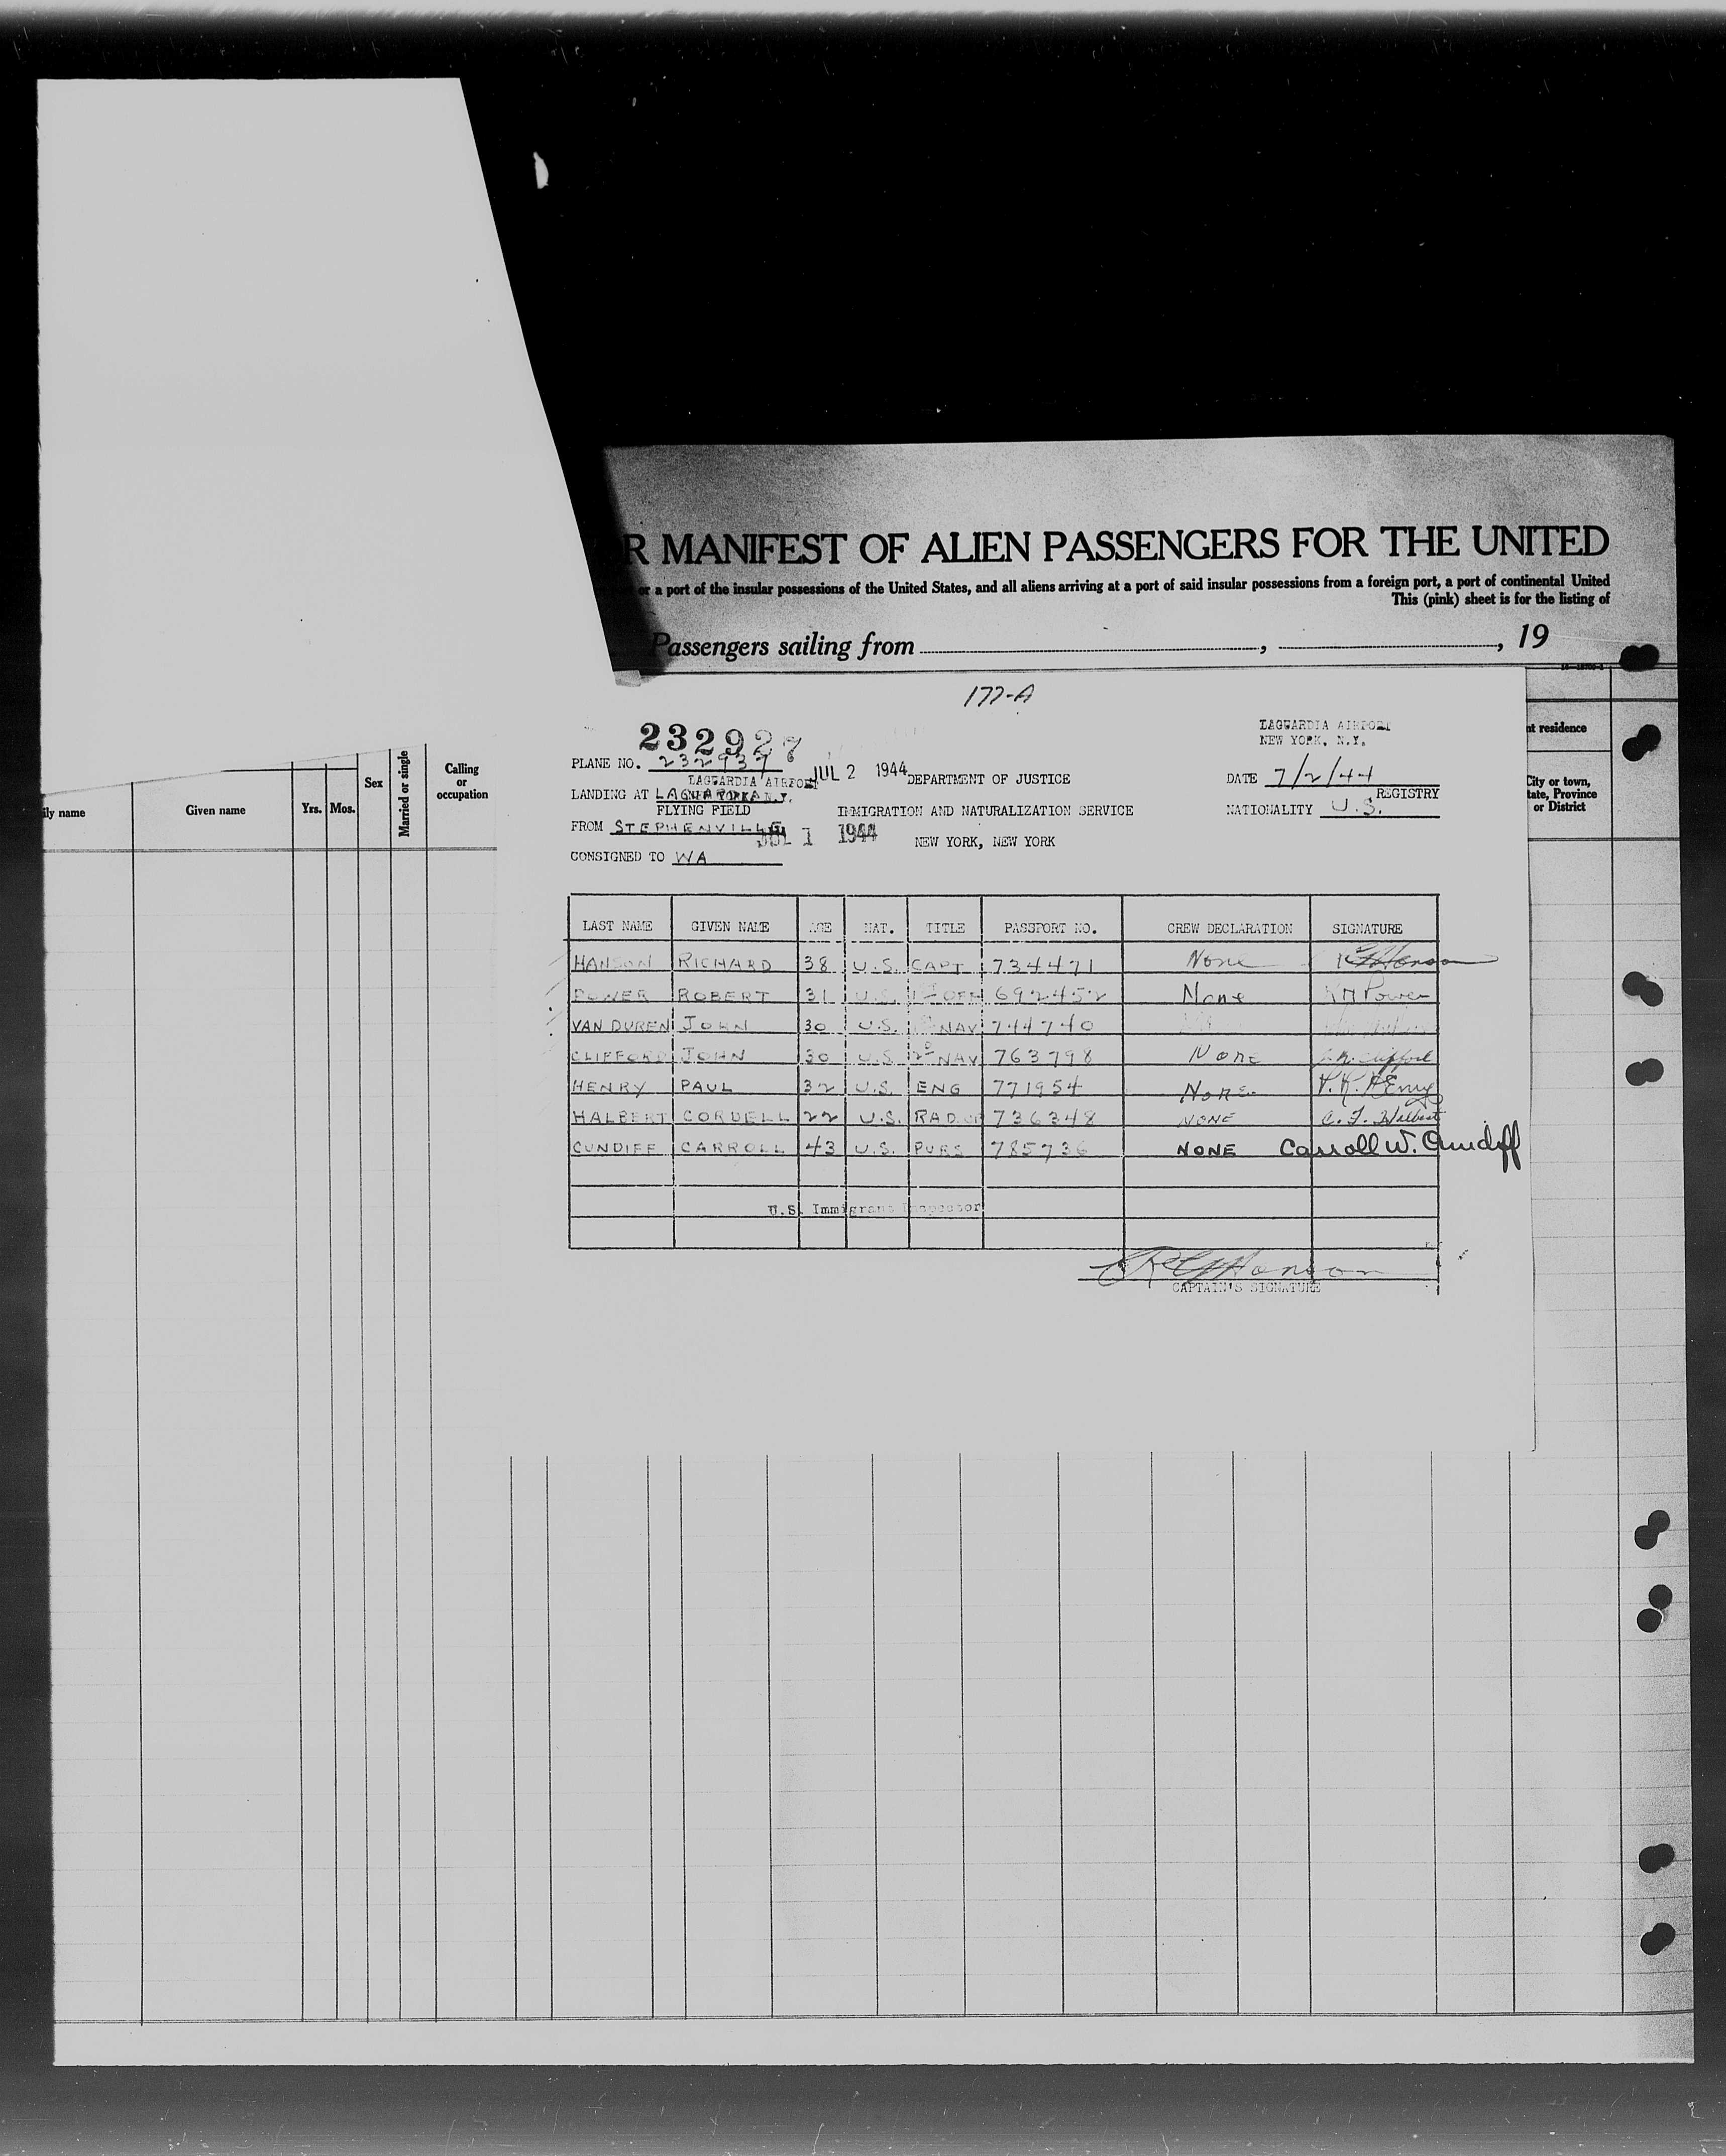 R MANIFEST OF ALIEN PASSENGERS FOR THE UNITED
or a port of the insular possessions of the United States, and all aliens arriving at a port of said insular possessions from a foreign port, a port of continental United
This (pink) sheet is for the listing of
Passengers sailing from , , 19
177-A
232927
LAGUARDIA AIRPORT
NEW YORK, N.Y.
PLANE NO. 232937
LAGUARDIA AIRPORT
JUL 2 1944
DEPARTMENT OF JUSTICE
DATE 7/2/44
LANDING AT LAGUARDIA
REGISTRY
FLYING FIELD
IMMIGRATION AND NATURALIZATION SERVICE
NATIONALITY U.S.
FROM STEPHENVILLE
JUL 1 1944
NEW YORK, NEW YORK
CONSIGNED TO WA
nt residence
City or town,
tate, Province
or District
ily name Given name Yrs. Mos. Sex Married or single Calling or occupation
LAST NAME GIVEN NAME AGE NAT. TITLE PASSPORT NO. CREW DECLARATION SIGNATURE
HANSON RICHARD 38 U.S. CAPT 734471 None
POWER ROBERT 31 U.S. 1ST OFF 692452 None RH Power
VAN DUREN JOHN 30 U.S. NAV 744740
CLIFFORD JOHN 30 U.S. 2D NAV 763798 None Clifford
HENRY PAUL 32 U.S. ENG 771954 None P. K. HEnry
HALBERT CORDELL 22 U.S. RAD.OP 736348 NONE C. F. Halbert
CUNDIFF CARROLL 43 U.S. PURS 785736 NONE Carroll W. Cundiff
U.S. Immigrant Inspector
Hanson
CAPTAIN'S SIGNATURE